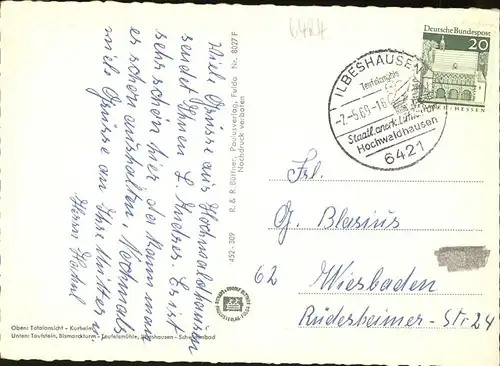 6484
Deutsche Bundespost
20
HESSEN
ILBESHAUSEN
Teufelsmühle
-7.-5.69-16
Staatl. anerk. Luftkurort
Hochwaldhausen
6421
Viele Grüsse aus Hochwaldhausen
sendet Ihnen L. Er ist
sehr schön hier da kann man
es schon aushalten. Nochmals
viele Grüsse an Ihre Mutter u.
Herrn
R. & R. Büttner, Paulusverlag, Fulda Nr. 8027 F
Nachdruck verboten
452 - 309
Frl.
G. Blasius
62 Wiesbaden
Rüdesheimer-Str 24
Oben: Totalansicht - Kurheim
Unten: Taufstein, Bismarckturm - Teufelsmühle, Ilbeshausen - Schwimmbad